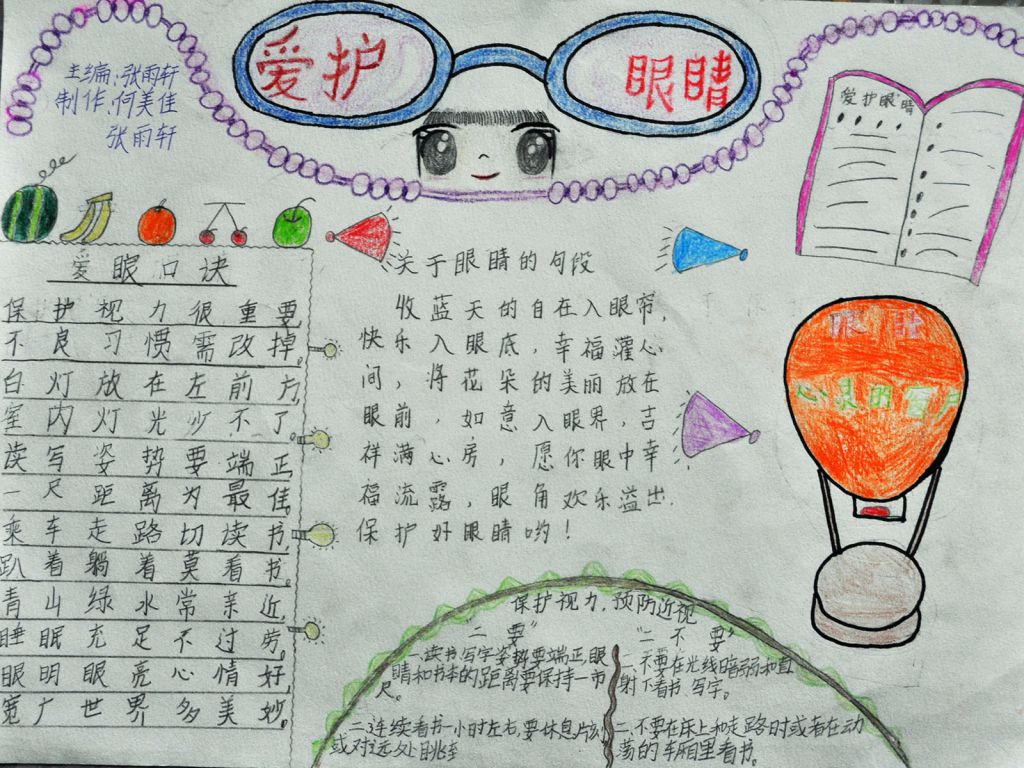 爱护 眼睛
主编:张雨轩
制作:何美佳
张雨轩
爱护眼睛
爱眼口诀
保护视力很重要
不良习惯需改掉。
台灯放在左前方
室内灯光少不了。
读写姿势要端正
一尺距离为最佳。
乘车走路切读书,
趴着躺着莫看书。
青山绿水常亲近,
睡眠充足不过劳。
眼明眼亮心情好,
宽广世界多美妙。
关于眼睛的句段
收蓝天的自在入眼帘,
快乐入眼底,幸福灌心
间,将花朵的美丽放在
眼前,如意入眼界,吉
祥满心房,愿你眼中幸
福流露,眼角欢乐溢出.
保护好眼睛哟!
眼睛
心灵的窗户
保护视力,预防近视
"二要"
一.读书写字姿势要端正,眼
睛和书本的距离要保持一市
尺。
二.连续看书一小时左右,要休息片刻
或对远处眺
"二不要"
一.不要在光线暗弱和直
射下看书、写字。
二.不要在床上和走路时或者在动
荡的车厢里看书。